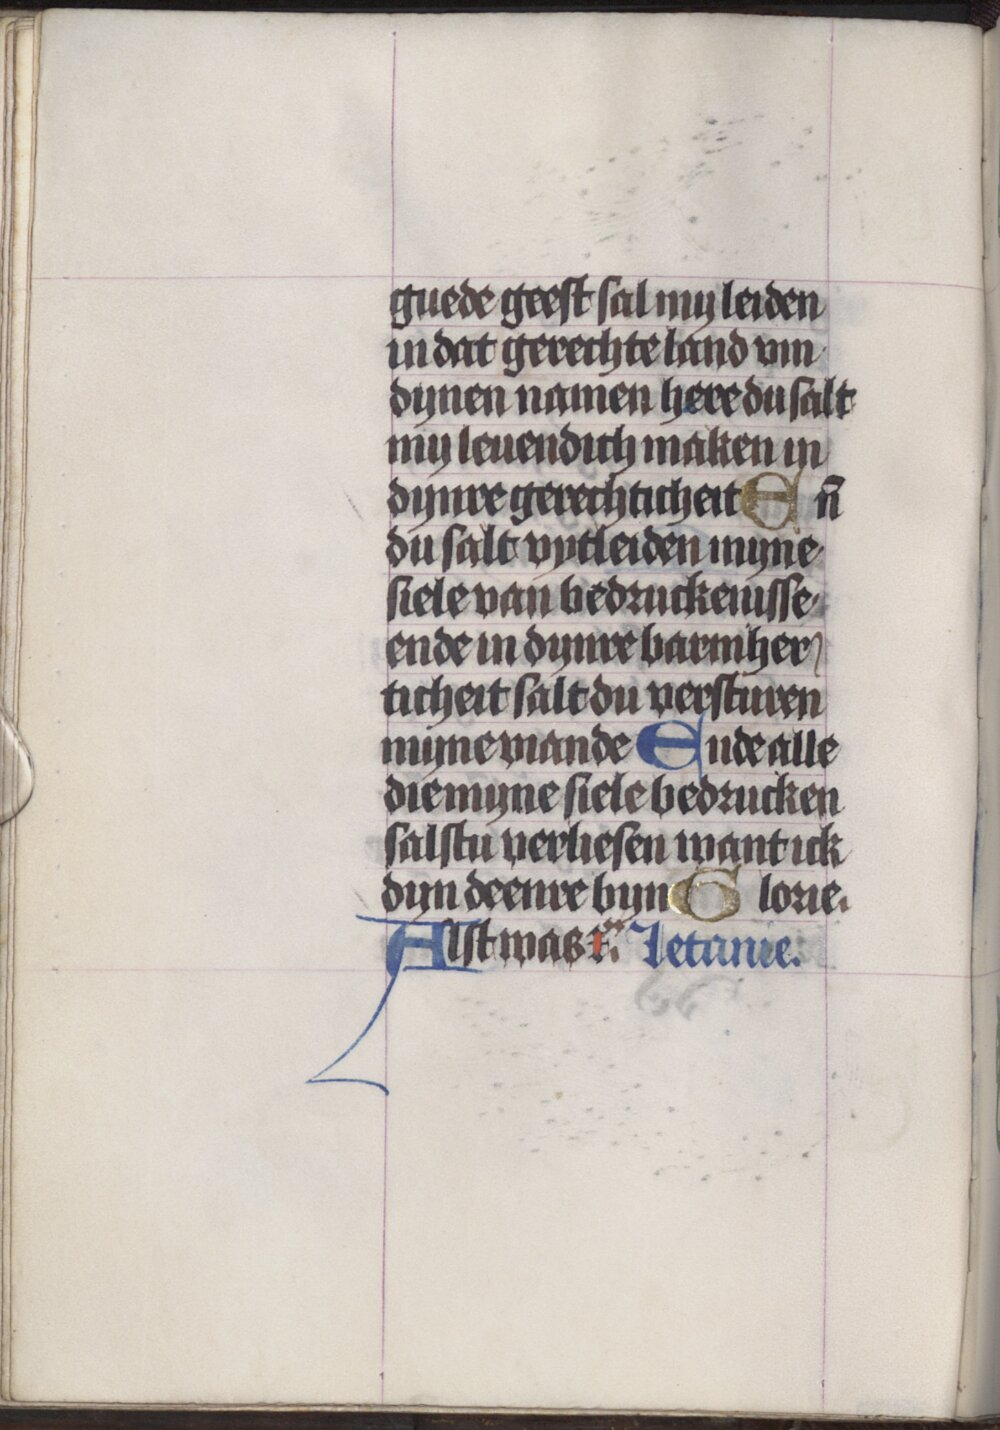 guede geest sal my leiden
in dat gerechte land vm
dynen namen here du salt
my leuendich maken in
dynre gerechticheit En̄
du salt vytleiden myne
siele van bedruckenisse
ende in dynre barmher
ticheit salt du versturen
myne viande Ende alle
die myne siele bedrucken
salstu verliesen want ick
dyn deenre byn Glorie.
Alst was Letanie.